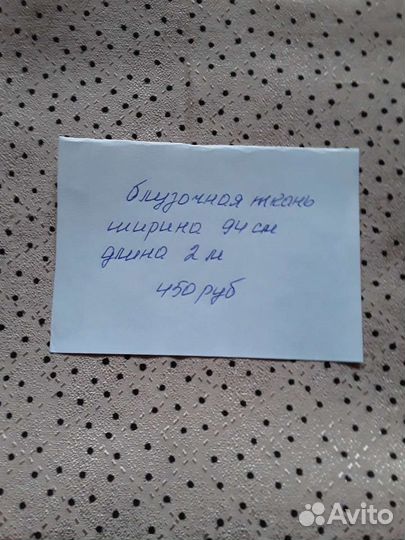 блузочная ткань
ширина 94 см
длина 2 м
450 руб
Avito